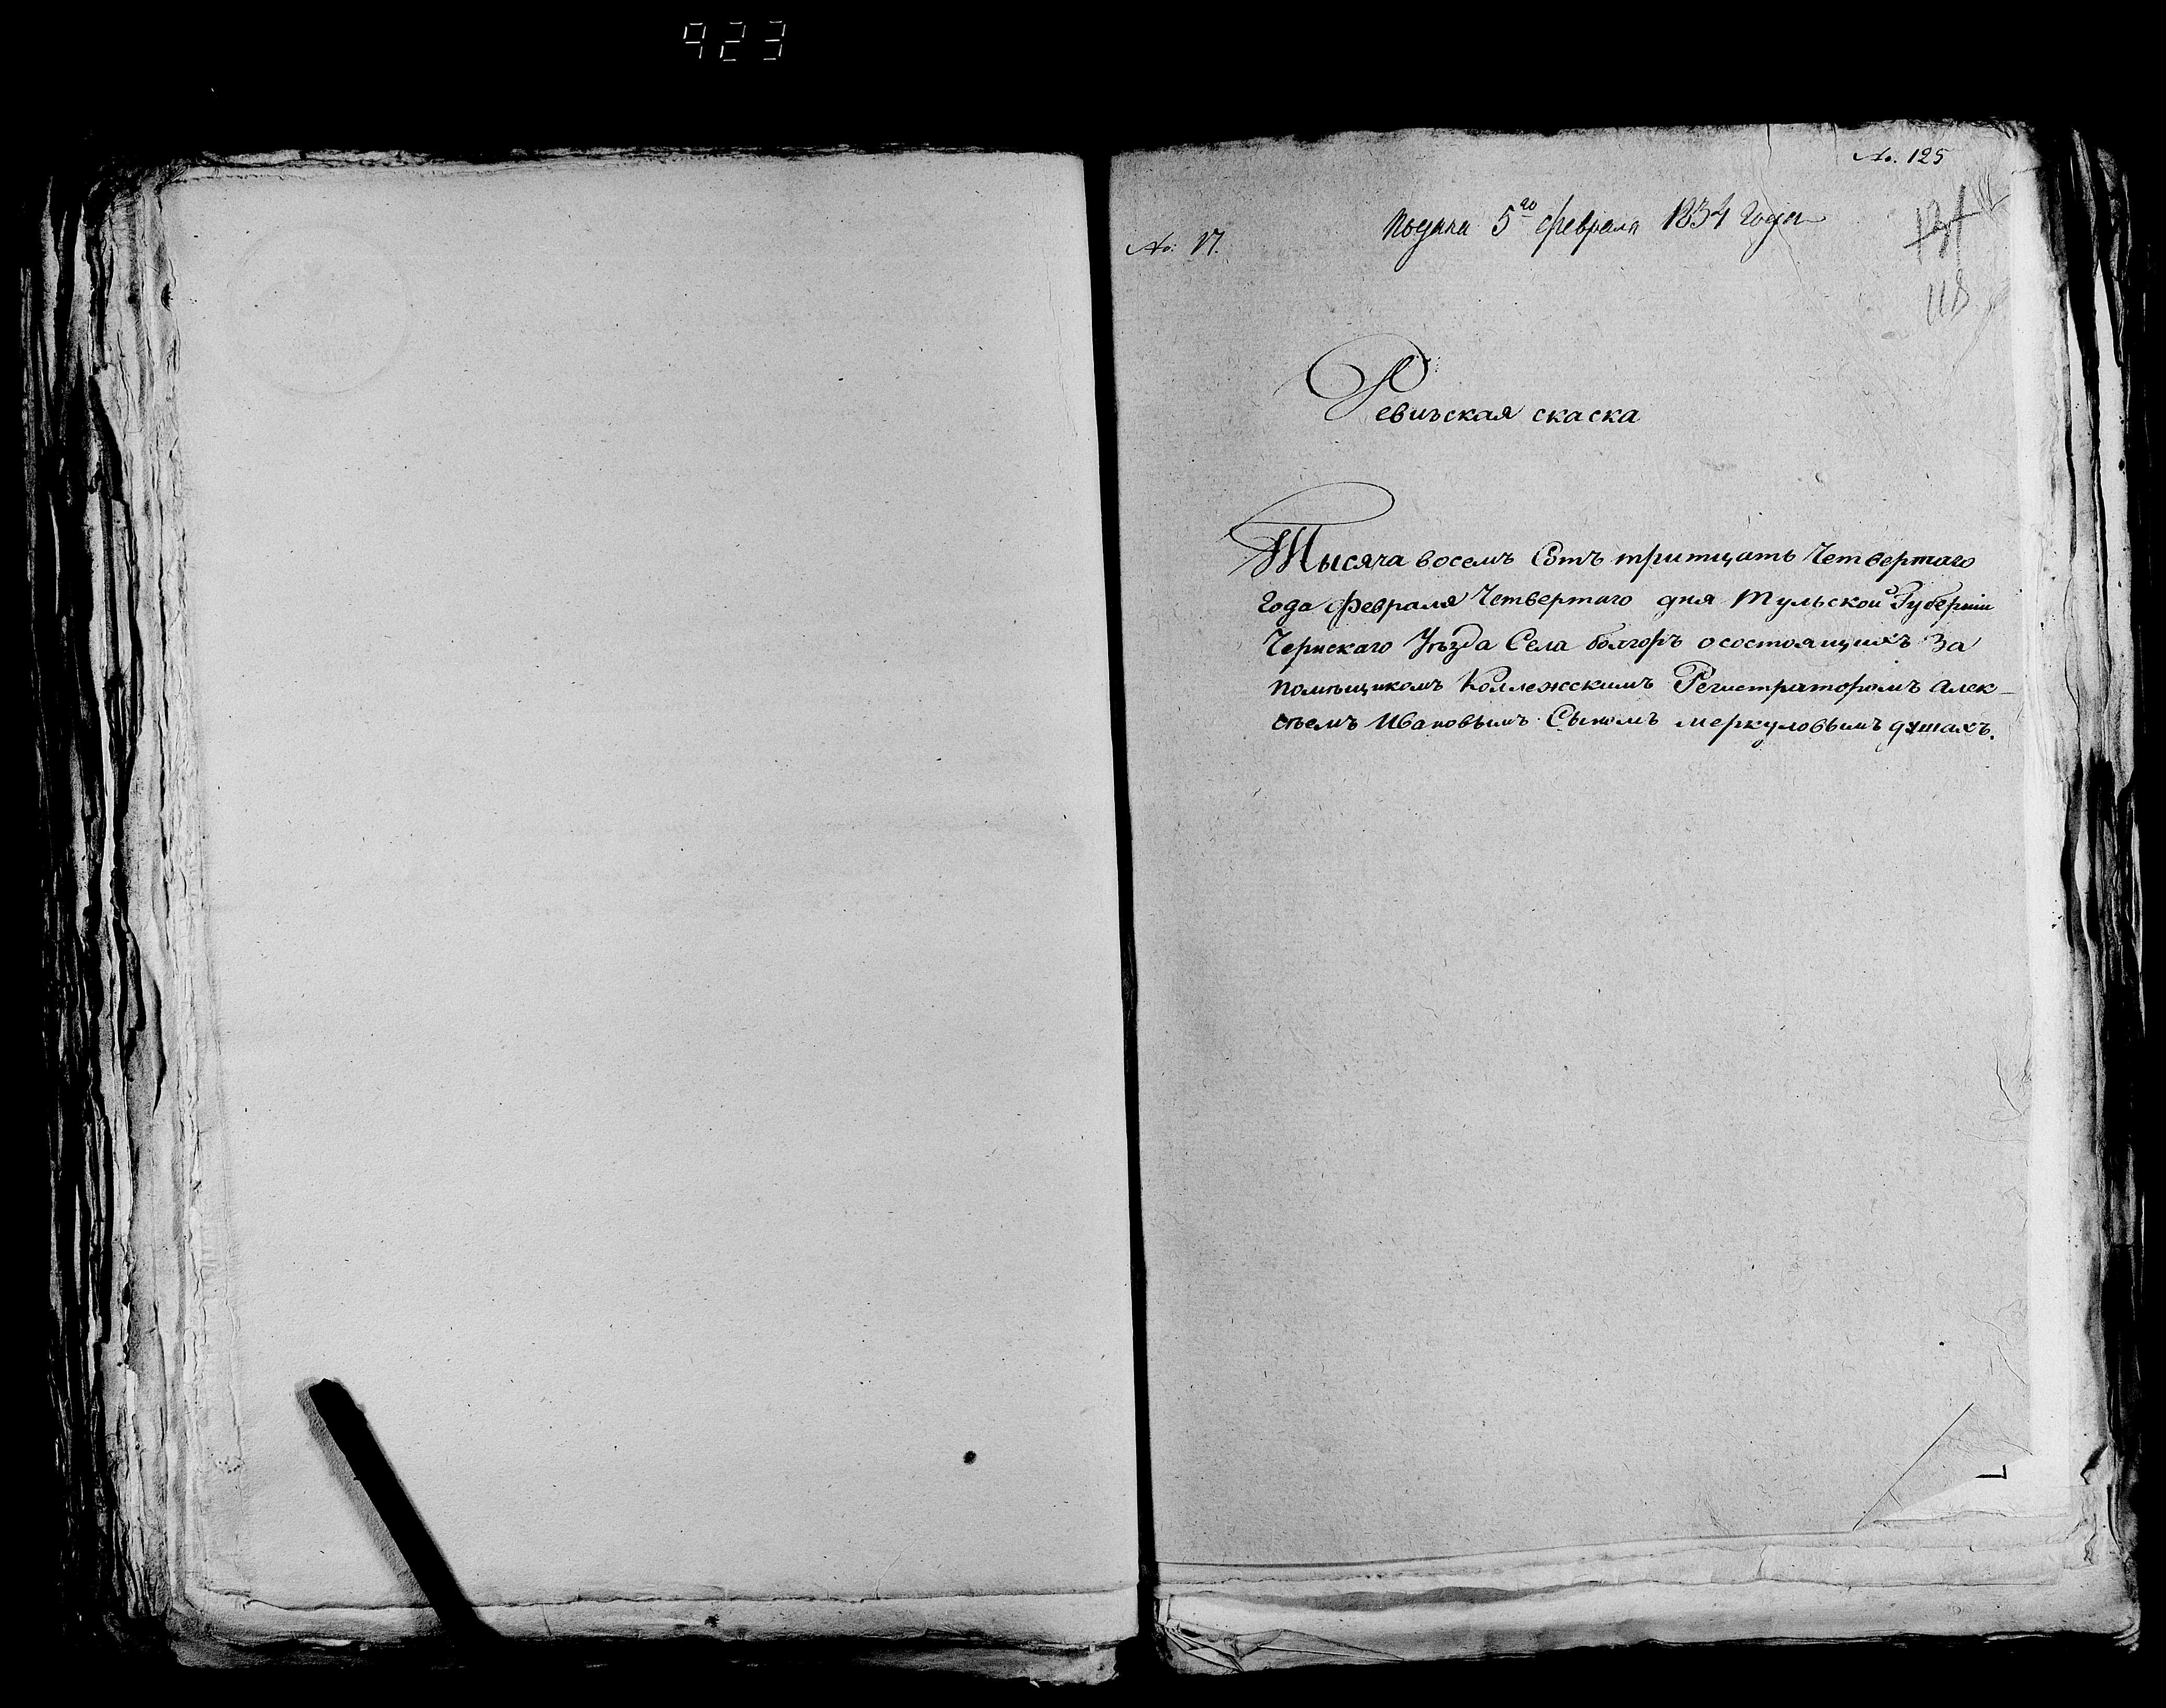 923
№. 125
№: 17.
подана 5го февраля 1834 года
118
Ревиская скаска
Тысяча восемь Сотъ тритцать Четвертаго
Года февраля Четвертаго дня Тульской Губерніи
Чернскаго Уѣзда Села болгоръ о состоящихъ За
помѣщикомъ Коллежскимъ Регистраторомъ Алек-
сѣемъ Ивановымъ Сыномъ меркуловымъ душахъ.